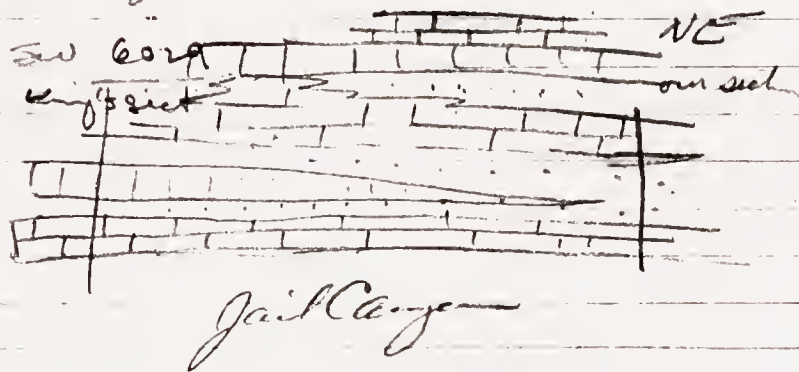 SW 6029 NE
King's sect our sect
Jail Canyon